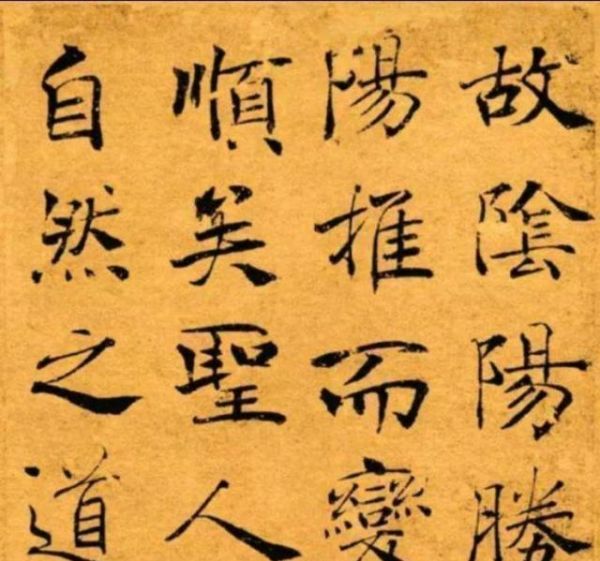 故陰陽勝
陽推而變
順矣聖人
自然之道